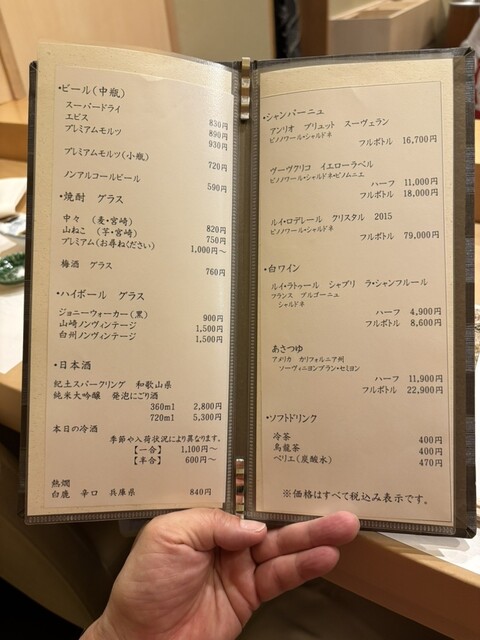 ・ビール(中瓶)
スーパードライ 830円
エビス 890円
プレミアムモルツ 930円
プレミアムモルツ(小瓶) 720円
ノンアルコールビール 590円
・焼酎 グラス
中々 (麦・宮崎) 820円
山ねこ (芋・宮崎) 750円
プレミアム(お尋ねください) 1,000円～
梅酒 グラス 760円
・ハイボール グラス
ジョニーウォーカー(黒) 900円
山崎ノンヴィンテージ 1,500円
白州ノンヴィンテージ 1,500円
・日本酒
紀土スパークリング 和歌山県
純米大吟醸 発泡にごり酒
360ml 2,800円
720ml 5,300円
本日の冷酒
季節や入荷状況により異なります。
【一合】 1,100円～
【半合】 600円～
熱燗
白鹿 辛口 兵庫県 840円
・シャンパーニュ
アンリオ ブリュット スーヴェラン
ピノノワール・シャルドネ
フルボトル 16,700円
ヴーヴクリコ イエローラベル
ピノノワール・シャルドネ・ピノムニエ
ハーフ 11,000円
フルボトル 18,000円
ルイ・ロデレール クリスタル 2015
ピノノワール・シャルドネ
フルボトル 79,000円
・白ワイン
ルイ・ラトゥール シャブリ ラ・シャンフルール
フランス ブルゴーニュ
シャルドネ
ハーフ 4,900円
フルボトル 8,600円
あさつゆ
アメリカ カリフォルニア州
ソーヴィニヨンブラン・セミヨン
ハーフ 11,900円
フルボトル 22,900円
・ソフトドリンク
冷茶 400円
烏龍茶 400円
ペリエ(炭酸水) 470円
※価格はすべて税込み表示です。